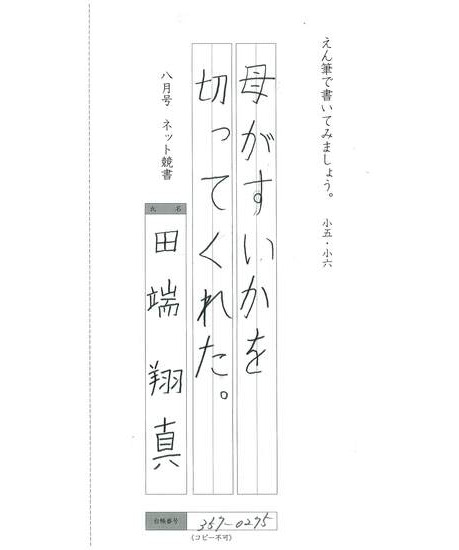 えん筆で書いてみましょう。 小五・小六
母がすいかを
切ってくれた。
八月号 ネット競書
氏名
田端 翔真
台帳番号 357-0275
(コピー不可)